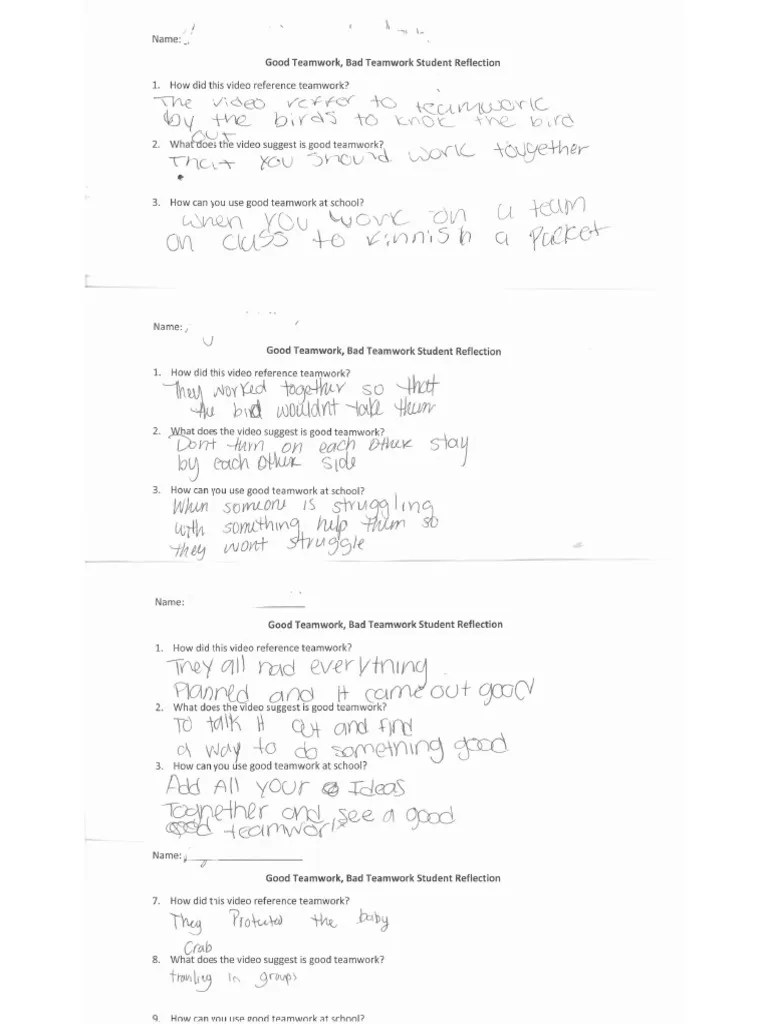 Name:
Good Teamwork, Bad Teamwork Student Reflection
1. How did this video reference teamwork?
The video reffer to teamwork
by the birds to knok the bird
out
2. What does the video suggest is good teamwork?
That you should work tougether
3. How can you use good teamwork at school?
when you work on a team
on class to finnish a packet
Name:
Good Teamwork, Bad Teamwork Student Reflection
1. How did this video reference teamwork?
They worked together so that
the bird wouldnt take them
2. What does the video suggest is good teamwork?
Dont turn on each other stay
by each other side
3. How can you use good teamwork at school?
When someone is struggling
with something help them so
they wont struggle
Name:
Good Teamwork, Bad Teamwork Student Reflection
1. How did this video reference teamwork?
They all had everything
Planned and it came out good
2. What does the video suggest is good teamwork?
To talk it out and find
a way to do something good
3. How can you use good teamwork at school?
Add All your Ideas
Together and see a good
teamwork
Name:
Good Teamwork, Bad Teamwork Student Reflection
7. How did this video reference teamwork?
They Protected the baby
Crab
8. What does the video suggest is good teamwork?
in groups
9. How can you use good teamwork at school?